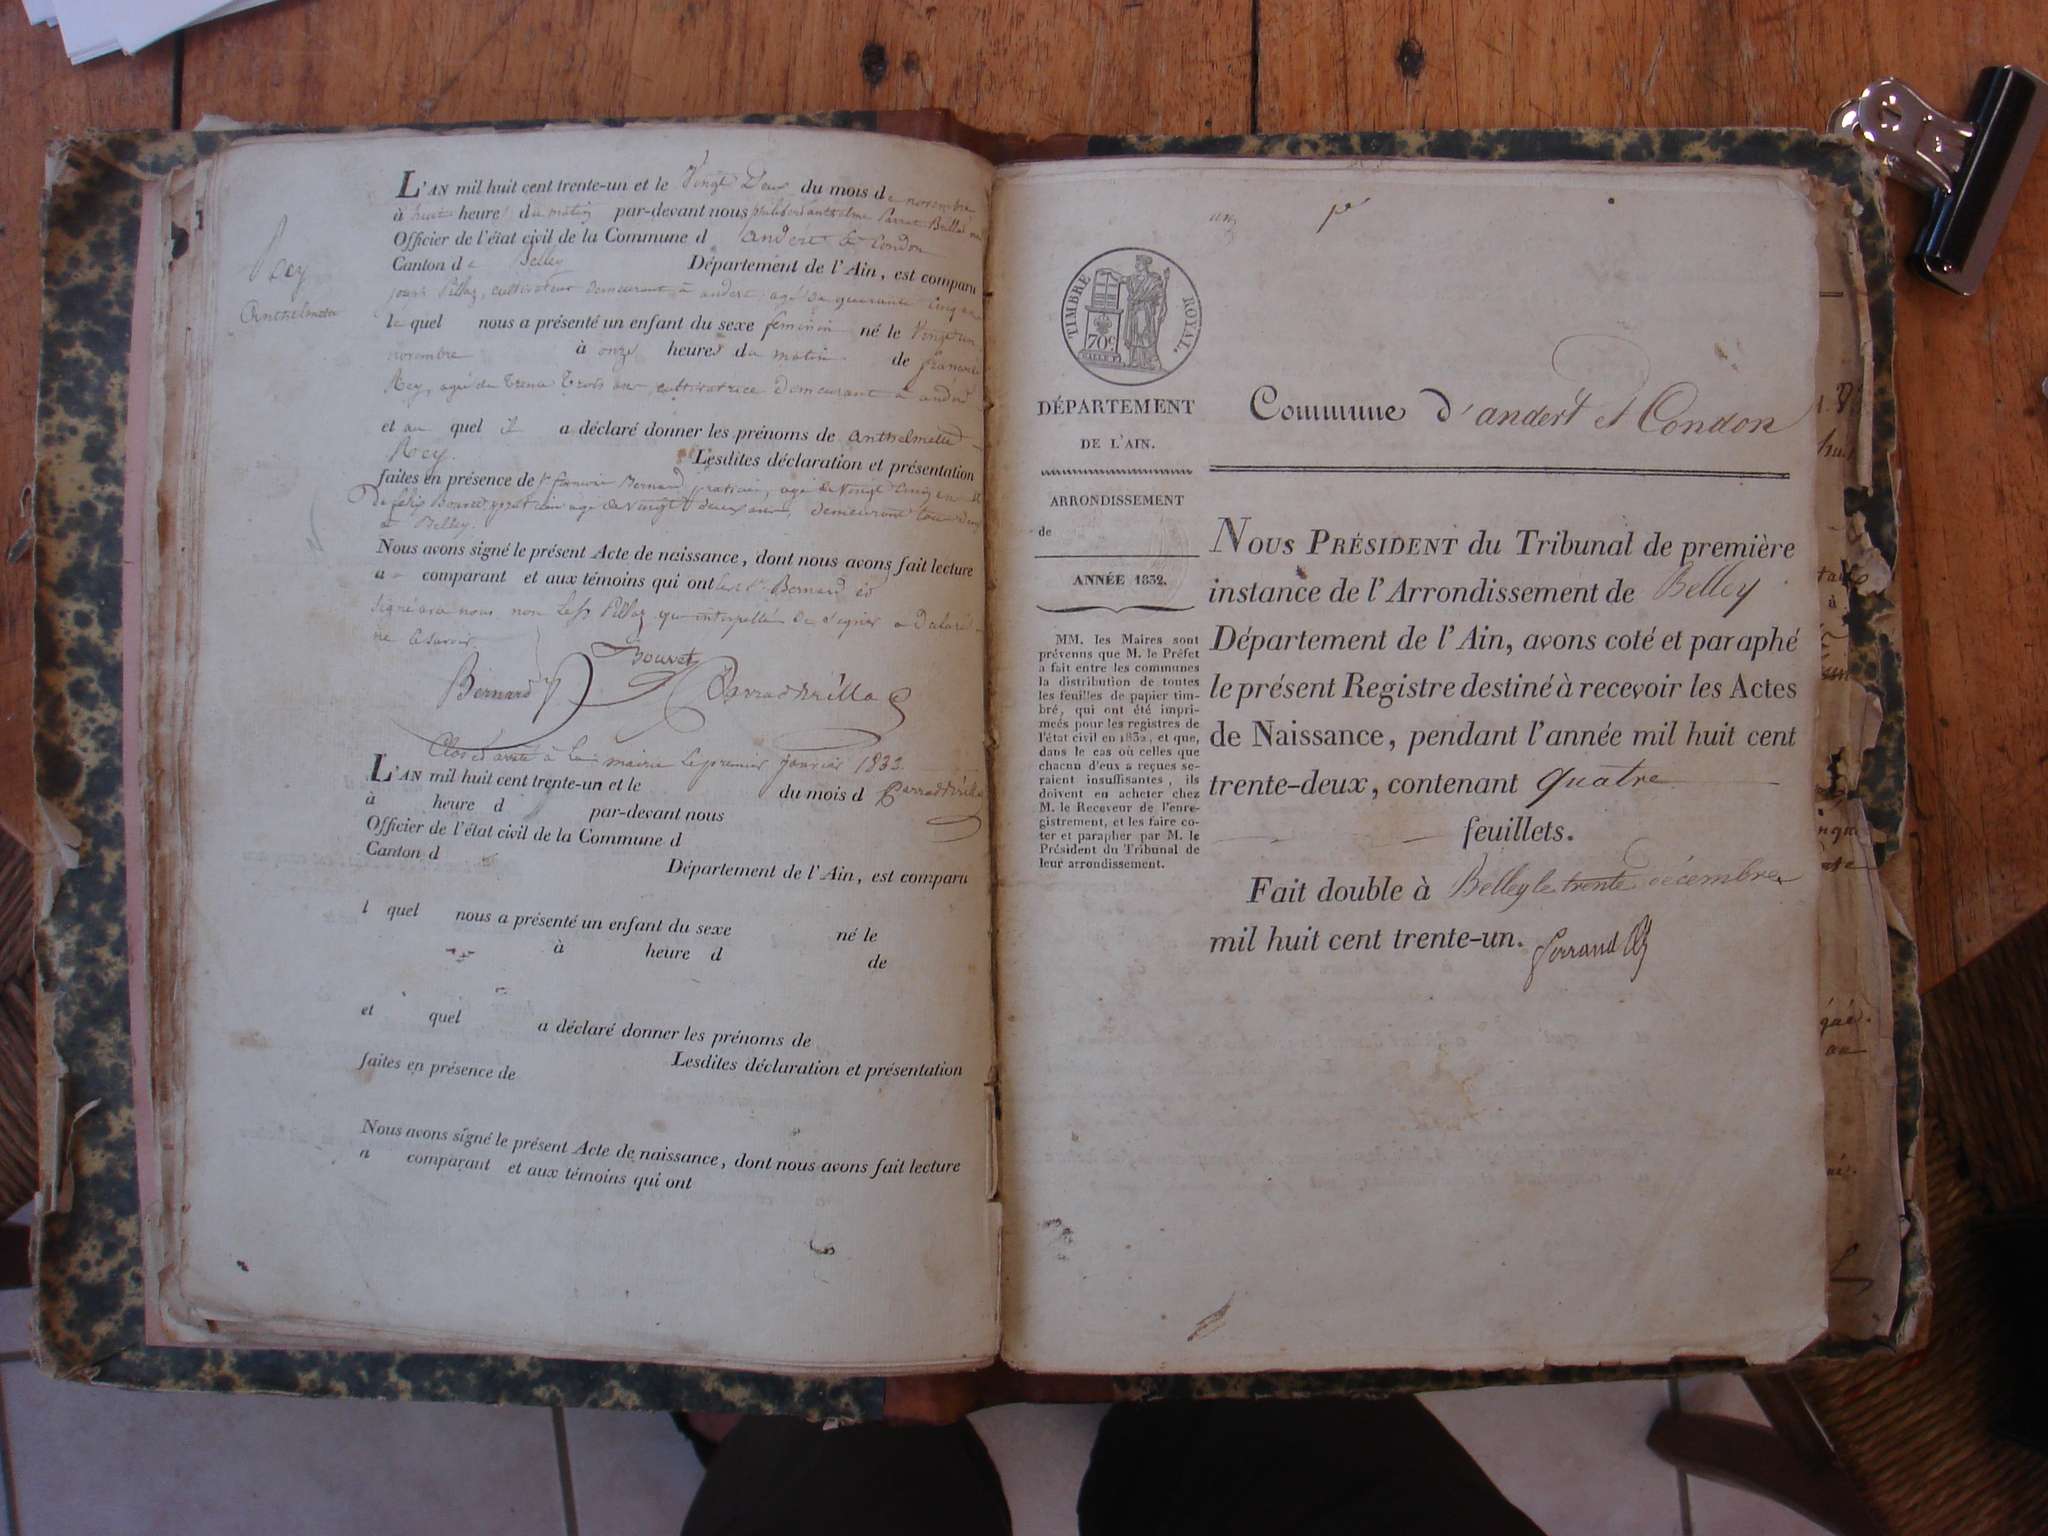 Rey
Anthelmette
L'AN mil huit cent trente-un et le Vingt Deux du mois de novembre
à huit heures du matin par-devant nous philibert anthelme Parrat Brillat
Officier de l'état civil de la Commune d andert & Condon
Canton de Belley Département de l'Ain, est comparu
Pillaz, cultivateur demeurant à andert, agé de quarante Cinq ans
le quel nous a présenté un enfant du sexe feminin né le Vingt un
novembre à onze heures du matin de
Rey, agée de Trente Trois ans, cultivatrice demeurant a andert
et au quel il a déclaré donner les prénoms de anthelmette
Rey. Lesdites déclaration et présentation
faites en présence de Sr Bernard praticien, agé de Vingt Cinq ans et
De felix Bouvet praticien agé de Vingt deux ans, demeurant tous deux
a Belley.
Nous avons signé le présent Acte de naissance, dont nous avons fait lecture
au comparant et aux témoins qui ont Bernard
signé avec nous non Pillaz qui interpellé De signer a Déclaré
ne le savoir
Bouvet
Bernard Parrat Brillat
Clos et arreté à la mairie le premier janvier 1832.
Parrat Brillat
L'AN mil huit cent trente-un et le du mois d
à heure d par-devant nous
Officier de l'état civil de la Commune d
Canton d Département de l'Ain, est comparu
l quel nous a présenté un enfant du sexe né le
à heure d de
et quel a déclaré donner les prénoms de
Lesdites déclaration et présentation
faites en présence de
Nous avons signé le présent Acte de naissance, dont nous avons fait lecture
a comparant et aux témoins qui ont
TIMBRE ROYAL.
70c
DÉPARTEMENT
DE L'AIN.
ARRONDISSEMENT
de
ANNÉE 1832.
MM. les Maires sont
prévenus que M. le Préfet
a fait entre les communes
la distribution de toutes
les feuilles de papier tim-
bré, qui ont été impri-
meés pour les registres de
l'état civil en 1832, et que,
dans le cas où celles que
chacun d'eux a reçues se-
raient insuffisantes, ils
doivent en acheter chez
M. le Receveur de l'enre-
gistrement, et les faire co-
ter et parapher par M. le
Président du Tribunal de
leur arrondissement.
Commune d'andert et Condon
NOUS PRÉSIDENT du Tribunal de première
instance de l'Arrondissement de Belley
Département de l'Ain, avons coté et paraphé
le présent Registre destiné à recevoir les Actes
de Naissance, pendant l'année mil huit cent
trente-deux, contenant quatre
feuillets.
Fait double à Belley le trente décembre
mil huit cent trente-un. Ferrand